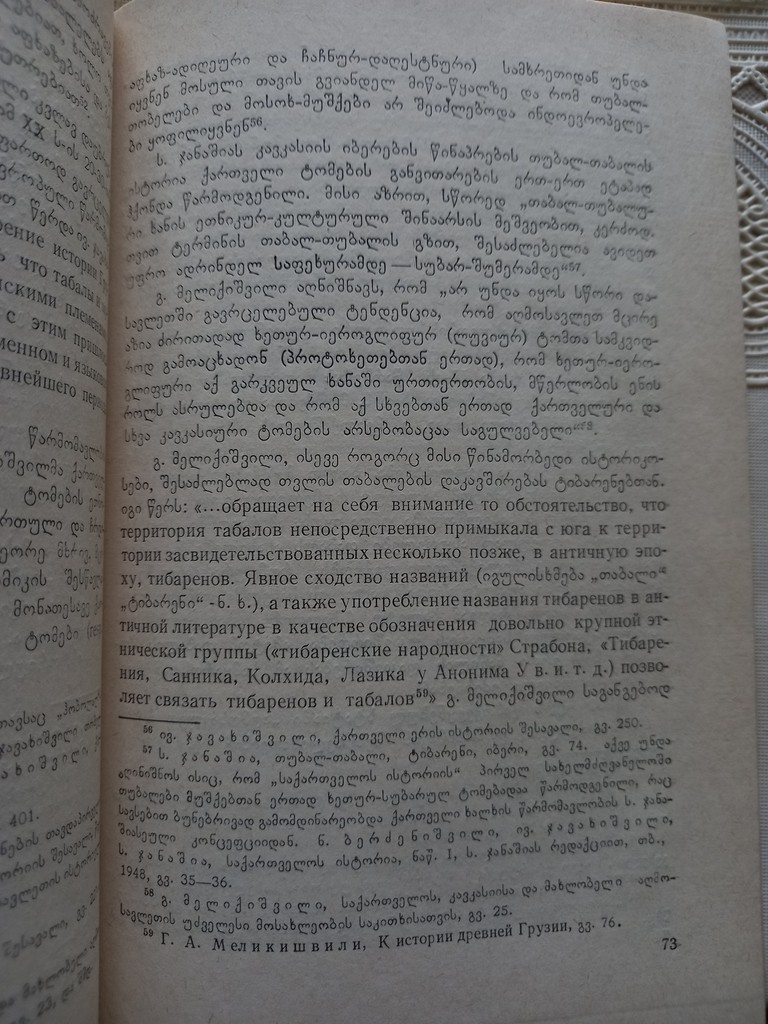 აფხაზ-ადიღეური და ჩაჩნურ-დაღესტნური) სამხრეთიდან უნდა
იყვნენ მოსული თავის გვიანდელ მიწა-წყალზე და რომ თუბალ-
თობელები და მოსოხ-მუშქები არ შეიძლებოდა ინდოევროპელე-
ბი ყოფილიყვნენ⁵⁶.
ს. ჯანაშიას კავკასიის იბერების წინაპრების თუბალ-თაბალის
ისტორია ქართველი ტომების განვითარების ერთ-ერთ ეტაპად
ჰქონდა წარმოდგენილი. მისი აზრით, სწორედ „თაბალ-თუბალუ-
რი ხანის ეთნიკურ-კულტურული შინაარსის მეშვეობით, კერძოდ,
თვით ტერმინის თაბალ-თუბალის გზით, შესაძლებელია ავიდეთ
უფრო ადრინდელ საფეხურამდე — სუბარ-შუმერამდე“⁵⁷.
გ. მელიქიშვილი აღნიშნავს, რომ „არ უნდა იყოს სწორი და-
სავლეთში გავრცელებული ტენდენცია, რომ აღმოსავლეთ მცირე
აზია ძირითადად ხეთურ-იეროგლიფურ (ლუვიურ) ტომთა სამკვიდ-
როდ გამოაცხადონ (პროტოხეთებთან ერთად), რომ ხეთურ-იერო-
გლიფური აქ გარკვეულ ხანაში ურთიერთობის, მწერლობის ენის
როლს ასრულებდა და რომ აქ სხვებთან ერთად ქართველური და
სხვა კავკასიური ტომების არსებობაცაა საგულვებელი“⁵⁸.
გ. მელიქიშვილი, ისევე როგორც მისი წინამორბედი ისტორიკო-
სები, შესაძლებლად თვლის თაბალების დაკავშირებას ტიბარენებთან.
იგი წერს: «...обращает на себя внимание то обстоятельство, что
территория табалов непосредственно примыкала с юга к терри-
тории засвидетельствованных несколько позже, в античную эпо-
ху, тибаренов. Явное сходство названий (იგულისხმება „თაბალი“
„ტიბარენი“ -ნ. ხ.), а также употребление названия тибаренов в ан-
тичной литературе в качестве обозначения довольно крупной эт-
нической группы («тибаренские народности» Страбона, «Тибаре-
ния, Санника, Колхида, Лазика у Анонима V в. и. т. д.) позво-
ляет связать тибаренов и табалов⁵⁹» გ. მელიქიშვილი საგანგებოდ
⁵⁶ ივ. ჯავახიშვილი, ქართველი ერის ისტორიის შესავალი, გვ. 250.
⁵⁷ ს. ჯანაშია, თუბალ-თაბალი, ტიბარენი, იბერი, გვ. 74. აქვე უნდა
აღინიშნოს ისიც, რომ „საქართველოს ისტორიის“ პირველ სახელმძღვანელოში
თუბალები მუშქებთან ერთად ხეთურ-სუბარულ ტომებადაა წარმოდგენილი, რაც
სავსებით ბუნებრივად გამომდინარეობდა ქართველი ხალხის წარმომავლობის ს. ჯანა-
შიასეული კონცეფციიდან. ნ. ბერძენიშვილი, ივ. ჯავახიშვილი,
ს. ჯანაშია, საქართველოს ისტორია, ნაწ. I, ს. ჯანაშიას რედაქციით, თბ.,
1948, გვ. 35—36.
⁵⁸ გ. მელიქიშვილი, საქართველოს, კავკასიისა და მახლობელი აღმო-
სავლეთის უძველესი მოსახლეობის საკითხისათვის, გვ. 25.
⁵⁹ Г. А. Меликишвили, К истории древней Грузии, გვ. 76.
73